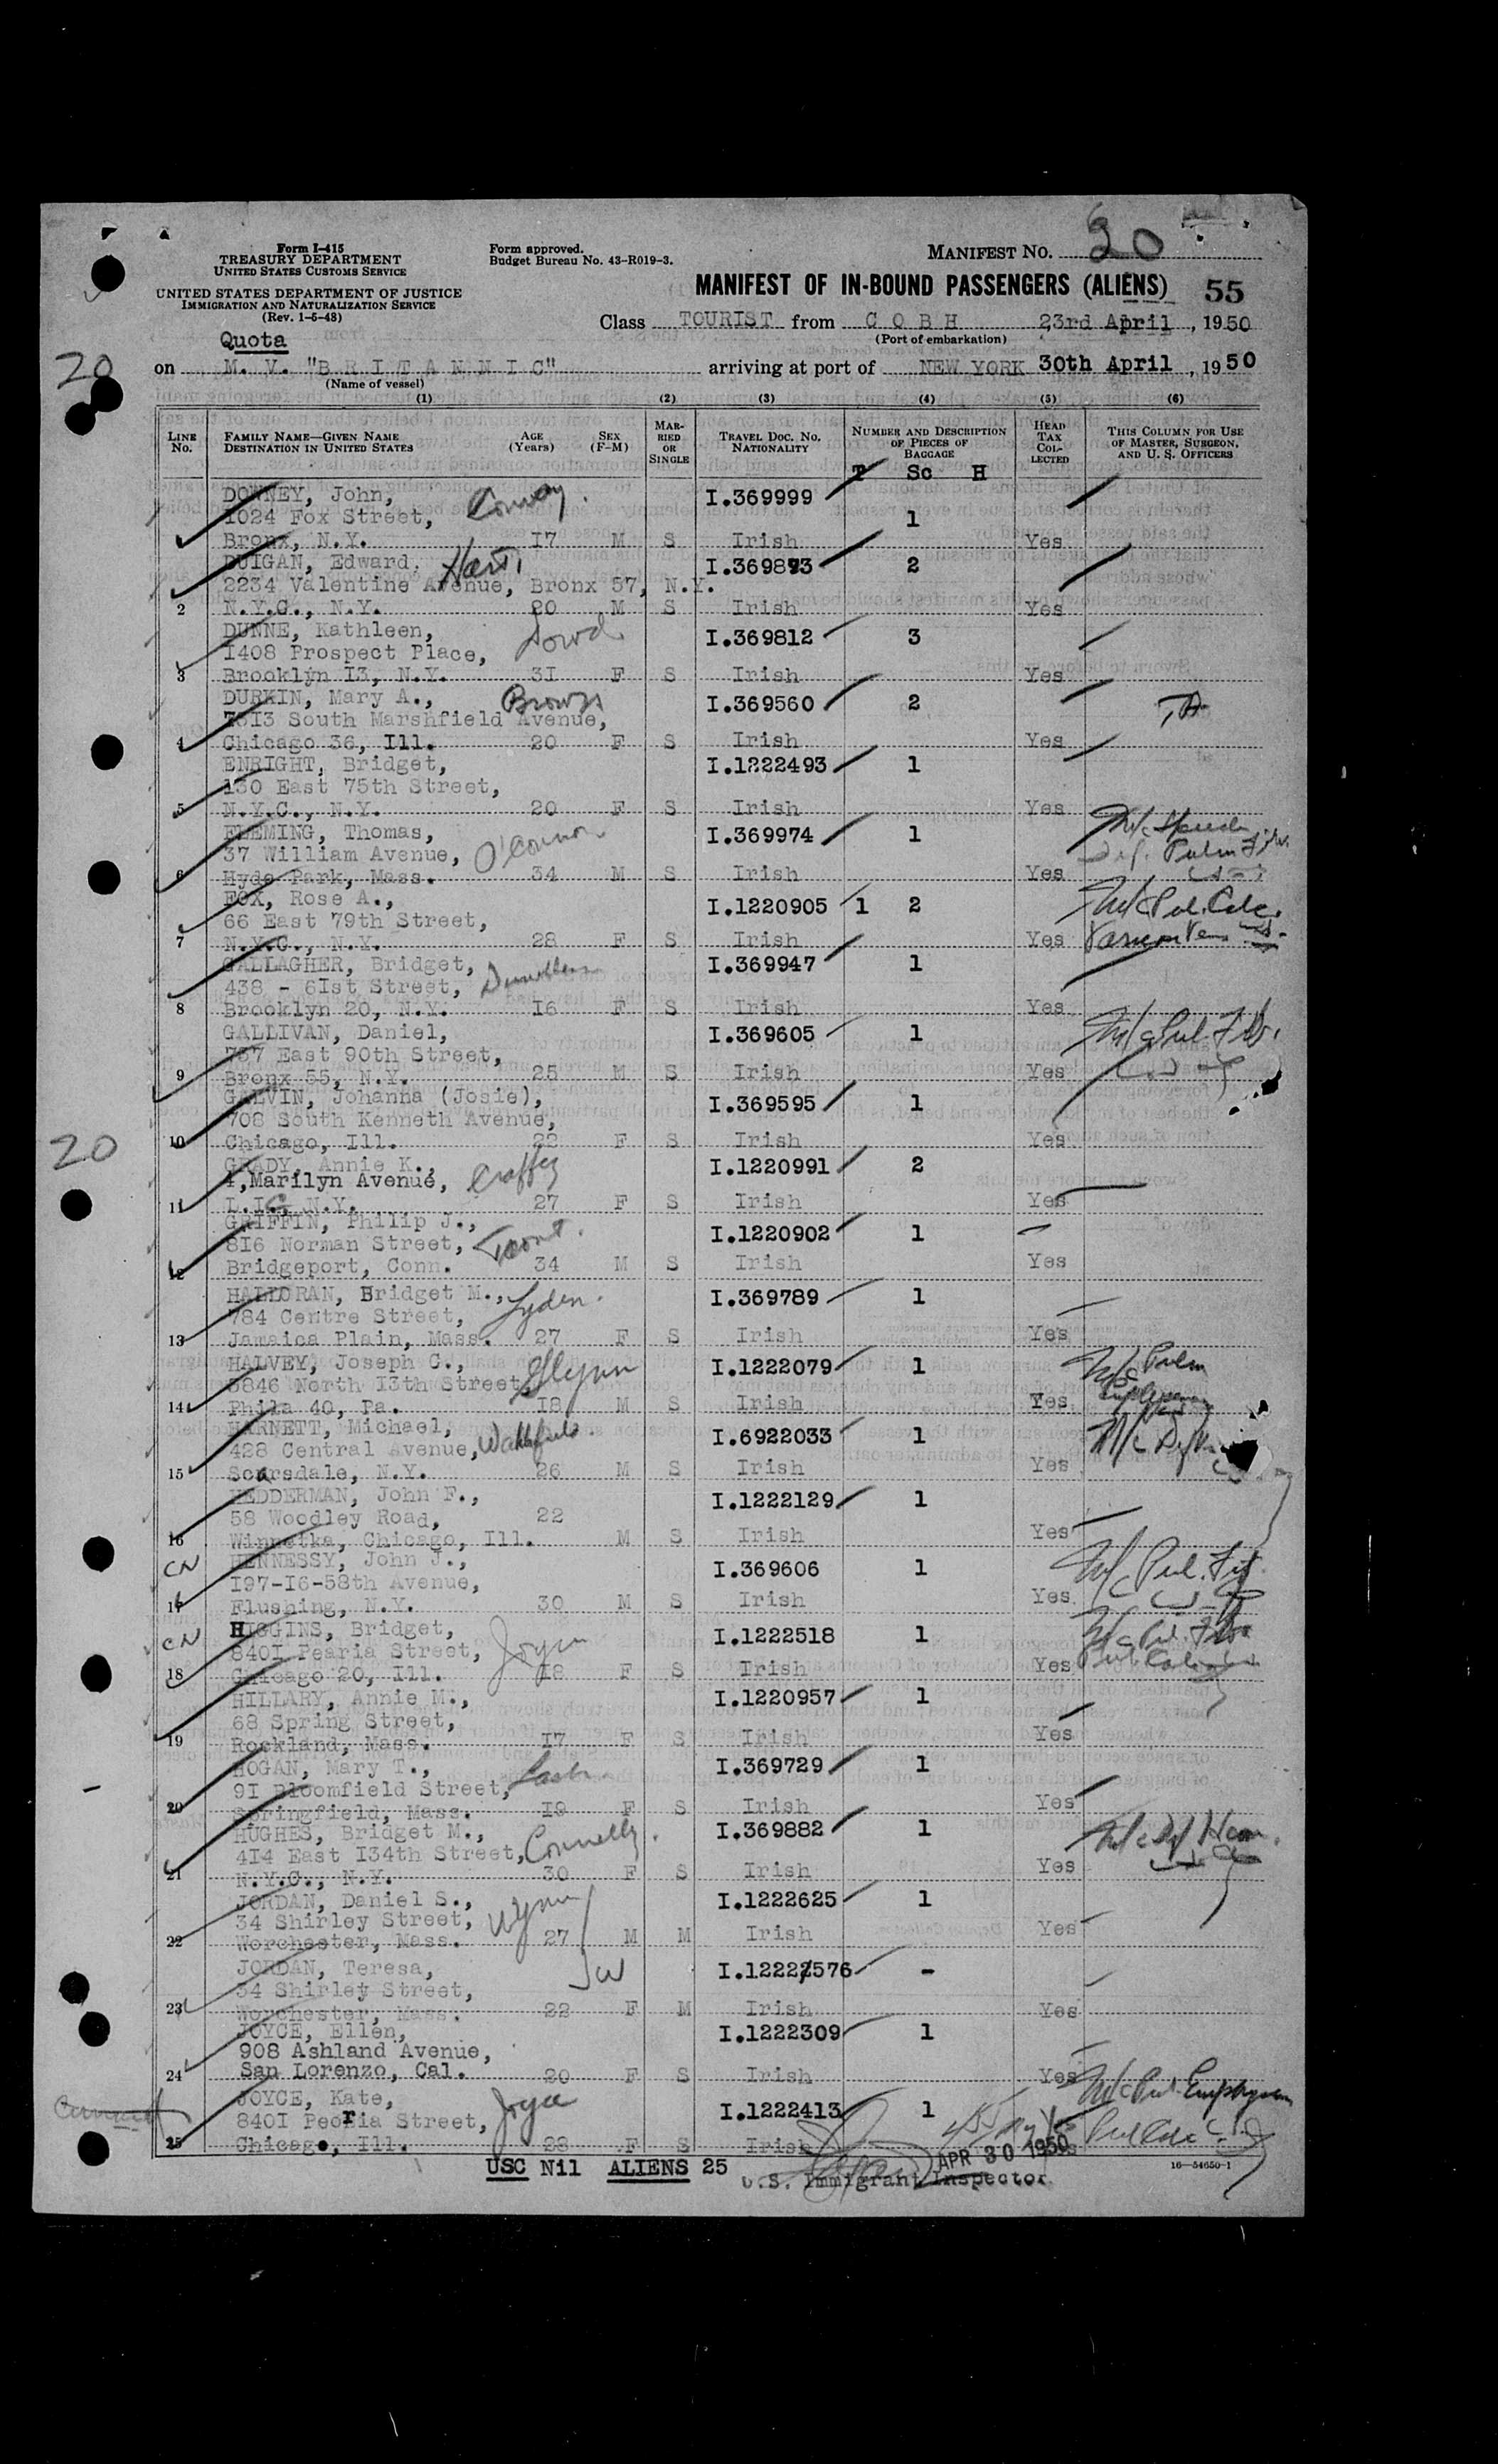 Form I-415
TREASURY DEPARTMENT
UNITED STATES CUSTOMS SERVICE
UNITED STATES DEPARTMENT OF JUSTICE
IMMIGRATION AND NATURALIZATION SERVICE
(Rev. 1-5-48)
Form approved.
Budget Bureau No. 43-R019-3.
MANIFEST NO. 20
MANIFEST OF IN-BOUND PASSENGERS (ALIENS) 55
Class TOURIST from COBH 23rd April, 1950
(Port of embarkation)
Quota
20
on M. V. "BRITANNIC" arriving at port of NEW YORK 30th April, 1950
(Name of vessel)
(1) (2) (3) (4) (5) (6)
LINE No. FAMILY NAME—GIVEN NAME DESTINATION IN UNITED STATES AGE (Years) SEX (F-M) MARRIED OR SINGLE TRAVEL DOC. NO. NATIONALITY NUMBER AND DESCRIPTION OF PIECES OF BAGGAGE HEAD TAX COLLECTED THIS COLUMN FOR USE OF MASTER, SURGEON, AND U. S. OFFICERS
T Sc H
DOWNEY, John, Conway I.369999
1024 Fox Street, 1
Bronx, N.Y. 17 M S Irish Yes
DUIGAN, Edward. Hart I.369873 2
2234 Valentine Avenue, Bronx 57, N.Y.
2 N.Y.C., N.Y. 20 M S Irish Yes
DUNNE, Kathleen, I.369812 3
1408 Prospect Place,
3 Brooklyn 13, N.Y. 31 F S Irish Yes
DURKIN, Mary A., Brown I.369560 2
7313 South Marshfield Avenue,
4 Chicago 36, Ill. 20 F S Irish Yes
ENRIGHT, Bridget, I.1222493 1
130 East 75th Street,
5 N.Y.C., N.Y. 20 F S Irish Yes
FLEMING, Thomas, O'Connor I.369974 1
37 William Avenue,
6 Hyde Park, Mass. 34 M S Irish Yes
FOX, Rose A., I.1220905 1 2
66 East 79th Street,
7 N.Y.C., N.Y. 28 F S Irish Yes
GALLAGHER, Bridget, I.369947 1
438 - 61st Street,
8 Brooklyn 20, N.Y. 16 F S Irish Yes
GALLIVAN, Daniel, I.369605 1
757 East 90th Street,
9 Bronx 55, N.Y. 25 M S Irish Yes
GALVIN, Johanna (Josie), I.369595 1
708 South Kenneth Avenue,
20
10 Chicago, Ill. 22 F S Irish Yes
GRADY, Annie K., I.1220991 2
4,Marilyn Avenue,
11 L.I.C. N.Y. 27 F S Irish Yes
GRIFFIN, Philip J., I.1220902 1
816 Norman Street,
12 Bridgeport, Conn. 34 M S Irish Yes
HALLORAN, Bridget M., Lyden I.369789 1
784 Centre Street,
13 Jamaica Plain, Mass. 27 F S Irish Yes
HALVEY, Joseph C., Glynn I.1222079 1
5846 North 13th Street,
14 Phila 40, Pa. 18 M S Irish Yes
HARNETT, Michael, I.6922033 1
428 Central Avenue, Wakefield
15 Scarsdale, N.Y. 26 M S Irish Yes
HEDDERMAN, John F., I.1222129 1
58 Woodley Road, 22
16 Winnetka, Chicago, Ill. M S Irish Yes
CN HENNESSY, John J., I.369606 1
197-16-58th Avenue,
17 Flushing, N.Y. 30 M S Irish Yes
CN HIGGINS, Bridget, Joyce I.1222518 1
8401 Pearia Street,
18 Chicago 20, Ill. 18 F S Irish Yes
HILLARY, Annie M., I.1220957 1
68 Spring Street,
19 Rockland, Mass. 17 F S Irish Yes
HOGAN, Mary T., I.369729 1
91 Bloomfield Street,
20 Springfield, Mass. 19 F S Irish Yes
HUGHES, Bridget M., I.369882 1
414 East 134th Street, Connelly
21 N.Y.C., N.Y. 30 F S Irish Yes
JORDAN, Daniel S., Wynn I.1222625 1
34 Shirley Street,
22 Worchester, Mass. 27 M M Irish Yes
JORDAN, Teresa, I.1222576 -
34 Shirley Street,
23 Worchester, Mass. 22 F M Irish Yes
JOYCE, Ellen, I.1222309 1
908 Ashland Avenue,
24 San Lorenzo, Cal. 20 F S Irish Yes
JOYCE, Kate, Joyce I.1222413 1
8401 Peoria Street,
25 Chicago, Ill. 28 F S Irish Yes
USC Nil ALIENS 25 APR 30 1950
U.S. Immigrant Inspector
16—54650-1